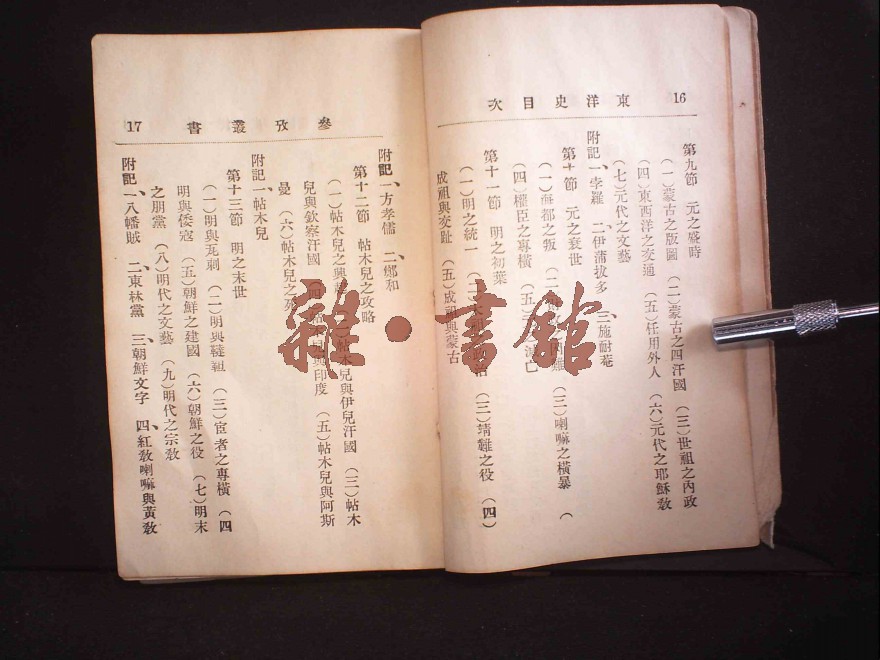 16
東洋史目次
第九節　元之盛時
（一）蒙古之版圖　（二）蒙古之四汗國　（三）世祖之內政
（四）東西洋之交通　（五）任用外人　（六）元代之耶穌敎
（七）元代之文藝
附記一、孛羅　二、伊蒲拔多　三、施耐菴
第十節　元之衰世
（一）海都之叛　（二　（三）喇嘛之橫暴　（
（四）權臣之專橫　（五）亡
第十一節　明之初葉
（一）明之統一　（二　治　（三）靖難之役　（四）
成祖與交趾　（五）成祖與蒙古
參攷叢書
17
附記一、方孝儒　二、鄭和
第十二節　帖木兒之攻略
（一）帖木兒之興　帖木兒與伊兒汗國　（三）帖木
兒與欽察汗國　（四）帖木兒與印度　（五）帖木兒與阿斯
曼　（六）帖木兒之死
附記一、帖木兒
第十三節　明之末世
（一）明與瓦剌　（二）明與韃靼　（三）宦者之專橫　（四
明與倭寇　（五）朝鮮之建國　（六）朝鮮之役　（七）明末
之朋黨　（八）明代之文藝　（九）明代之宗敎
附記一、八幡賊　二、東林黨　三、朝鮮文字　四、紅敎喇嘛與黃敎
雜·書館